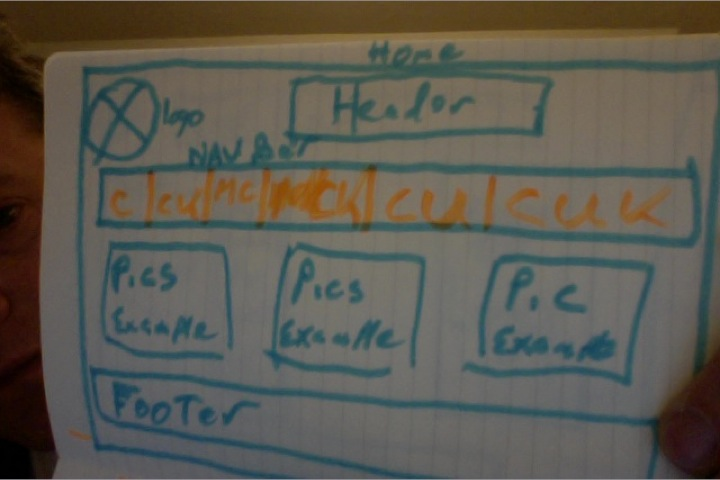 Home
logo
Header
NAV Bar
C | CU | MC | CK | CU | CUK
Pics
Example
Pics
Example
Pic
Example
Footer